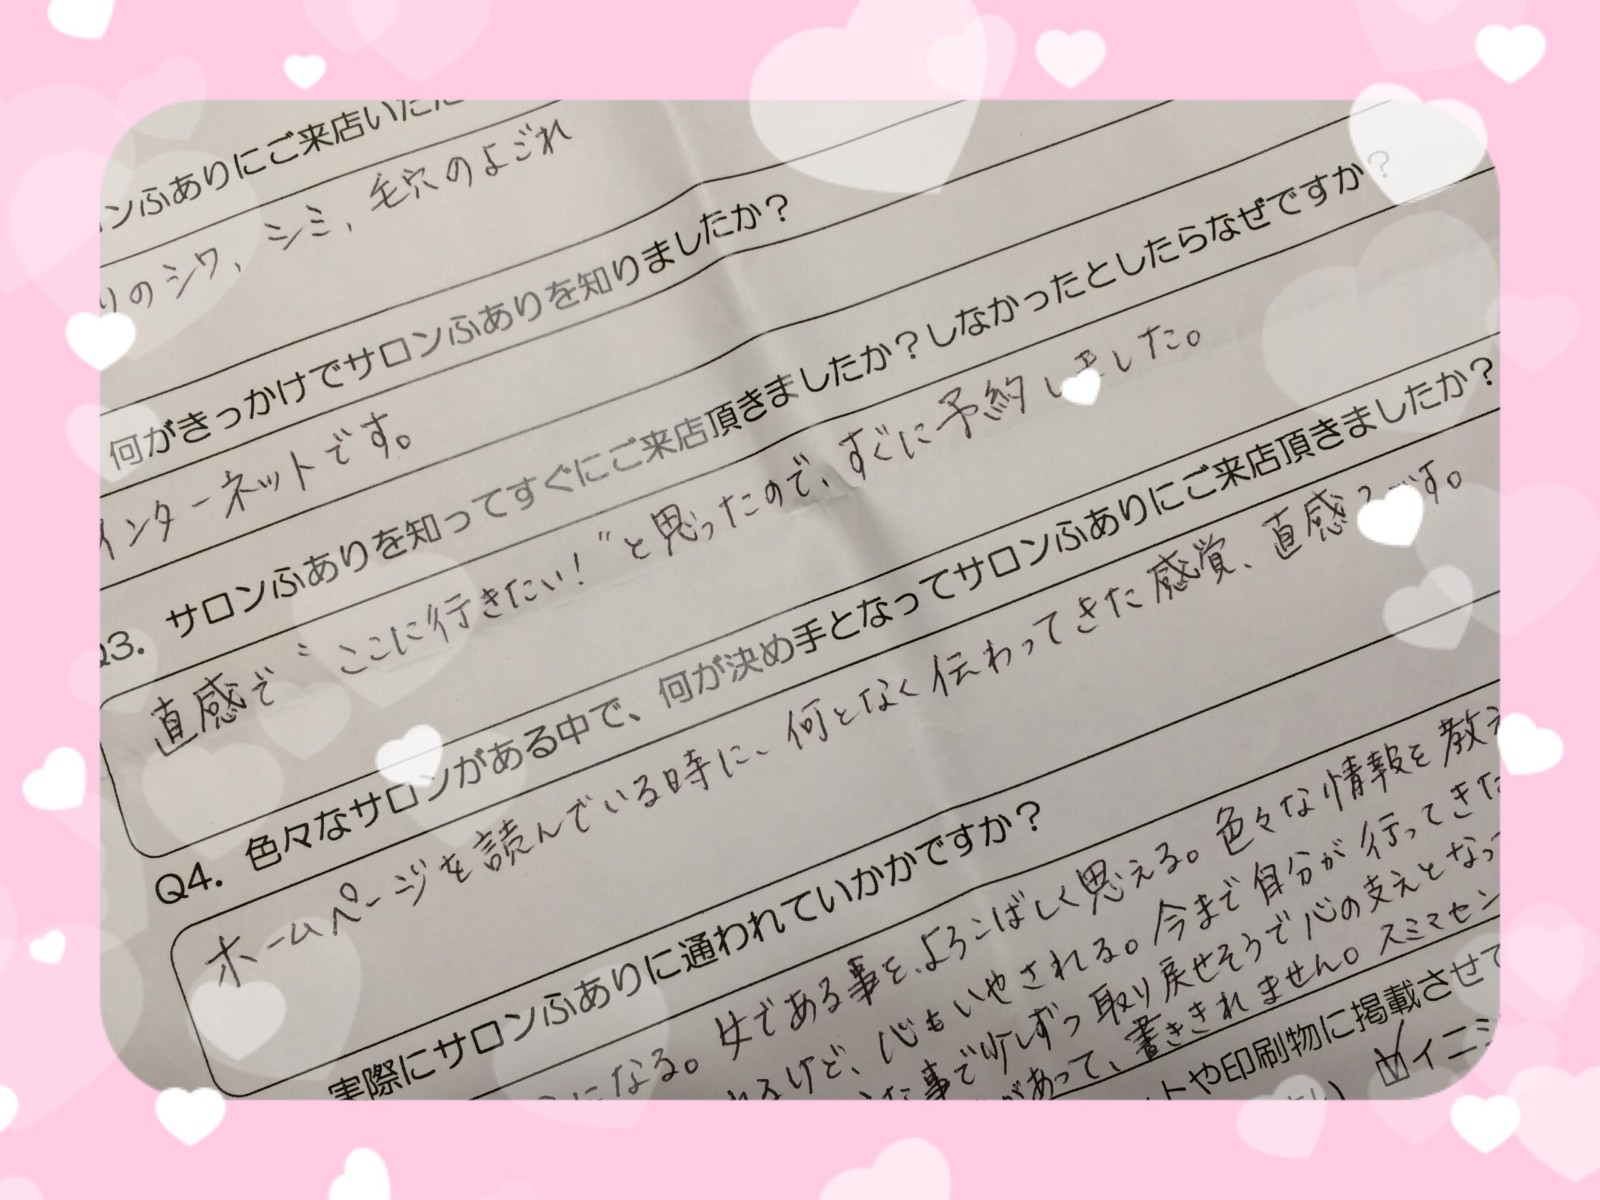 ンふありにご来店いただ
りのシワ、シミ、毛穴のよごれ
何がきっかけでサロンふありを知りましたか？
インターネットです。
Q3. サロンふありを知ってすぐにご来店頂きましたか？しなかったとしたらなぜですか？
直感で〝ここに行きたい！〟と思ったので、すぐに予約しました。
Q4. 色々なサロンがある中で、何が決め手となってサロンふありにご来店頂きましたか？
ホームページを読んでいる時に、何となく伝わってきた感覚、直感です。
実際にサロンふありに通われていかかですか？
になる。女である事を、よろこばしく思える。色々な情報を教え
れるけど、心もいやされる。今まで自分が行ってきた
た事で少しずつ取り戻せそうで心の支えとなっ
があって、書ききれません。スミマセン
トや印刷物に掲載させて
イニシ